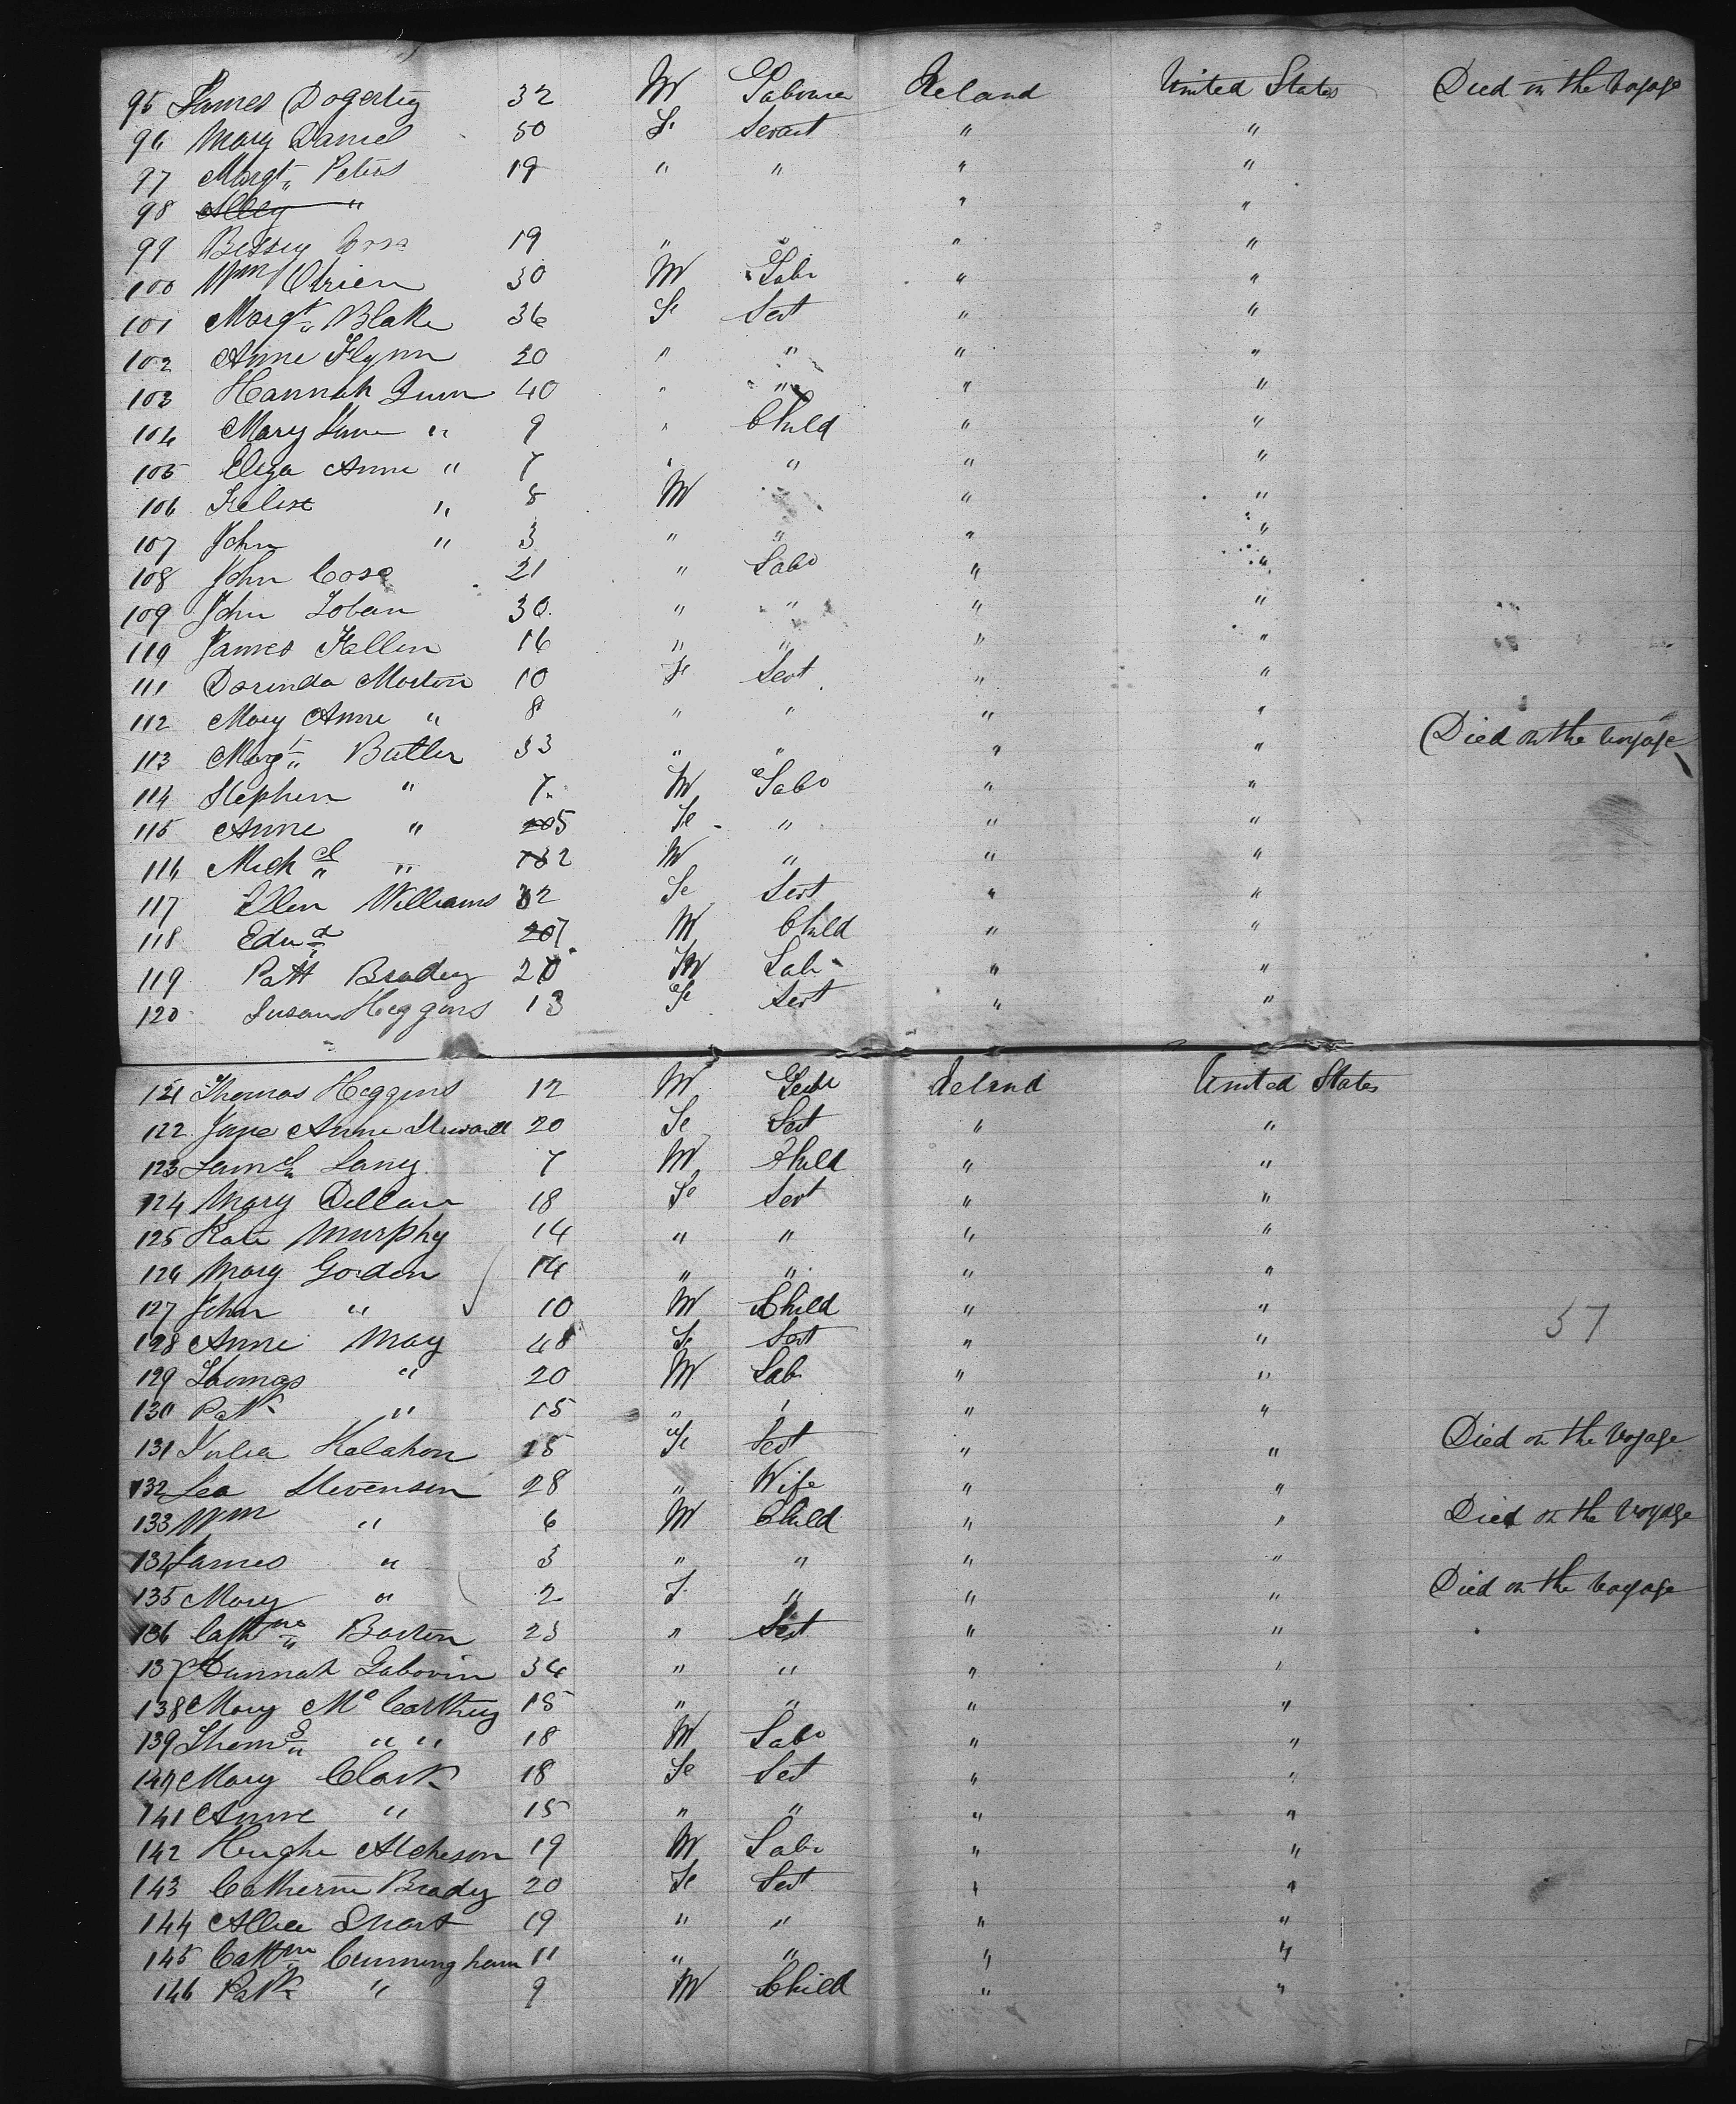 95 James Dogerty 32 M Laborer Ireland United States Died on the Voyage
96 Mary Daniel 50 Fe Servant " "
97 Margt Peters 19 " " " "
98 Alley " " "
99 Bessey 19 " " " "
100 Wm Obrien 30 M Labr " "
101 Margt Blake 36 Fe Sert " "
102 Anne Flynn 20 " " " "
103 Hannah Quin 40 " " " "
104 Mary Jane " 9 " Child " "
105 Eliza Anne " 7 " " " "
106 Felix " 5 M " "
107 John " 3 " " " "
108 John 21 " Labr " "
109 John 30 " " " "
110 James Fallen 16 " " " "
111 Dorinda Morton 10 Fe Sevt " "
112 Mary Anne " 8 " " " "
113 Margt Butler 33 " " " " Died on the Voyage
114 Stephen " 7 M Labr " "
115 Anne " 5 Fe " " "
116 Michl " 2 M " " "
117 Ellen Williams 32 Fe Sert " "
118 Edwd M Child " "
119 Patt Bradey M Lab " "
120 Susan Heggins 13 Fe Sert " "
121 Thomas Heggins 12 M Ireland United States
122 Jane Anne 20 Fe Sert " "
123 Saml Lany 7 M Child " "
124 Mary Dillan 18 Fe Sevt " "
125 Kate Murphy 14 " " " "
126 Mary Gordon 14 " " " "
127 John " 10 M Child " " 57
128 Anne May 48 Fe Sert " "
129 Thomas " 20 M Lab " "
130 Patk " 15 " " " "
131 Julia Kalahon 25 Fe Sert " " Died on the Voyage
132 Lea Stevenson 28 " Wife " "
133 Wm " 6 M Child " " Died on the Voyage
134 James " 3 " " " "
135 Mary " 2 F " " " Died on the Voyage
136 Cathne Barton 23 " Sert " "
137 Hannah 34 " " " "
138 Mary McCarthey 15 " " " "
139 Thoms " " 18 M Labr " "
140 Mary Clark 18 Fe Sert " "
141 Anne " 15 " " " "
142 Hughe Atcheson 19 M Labr " "
143 Catherine Brady 20 Fe Sert " "
144 19 " " " "
145 Cathne Cunningham 11 " " " "
146 Patk " 9 M Child " "